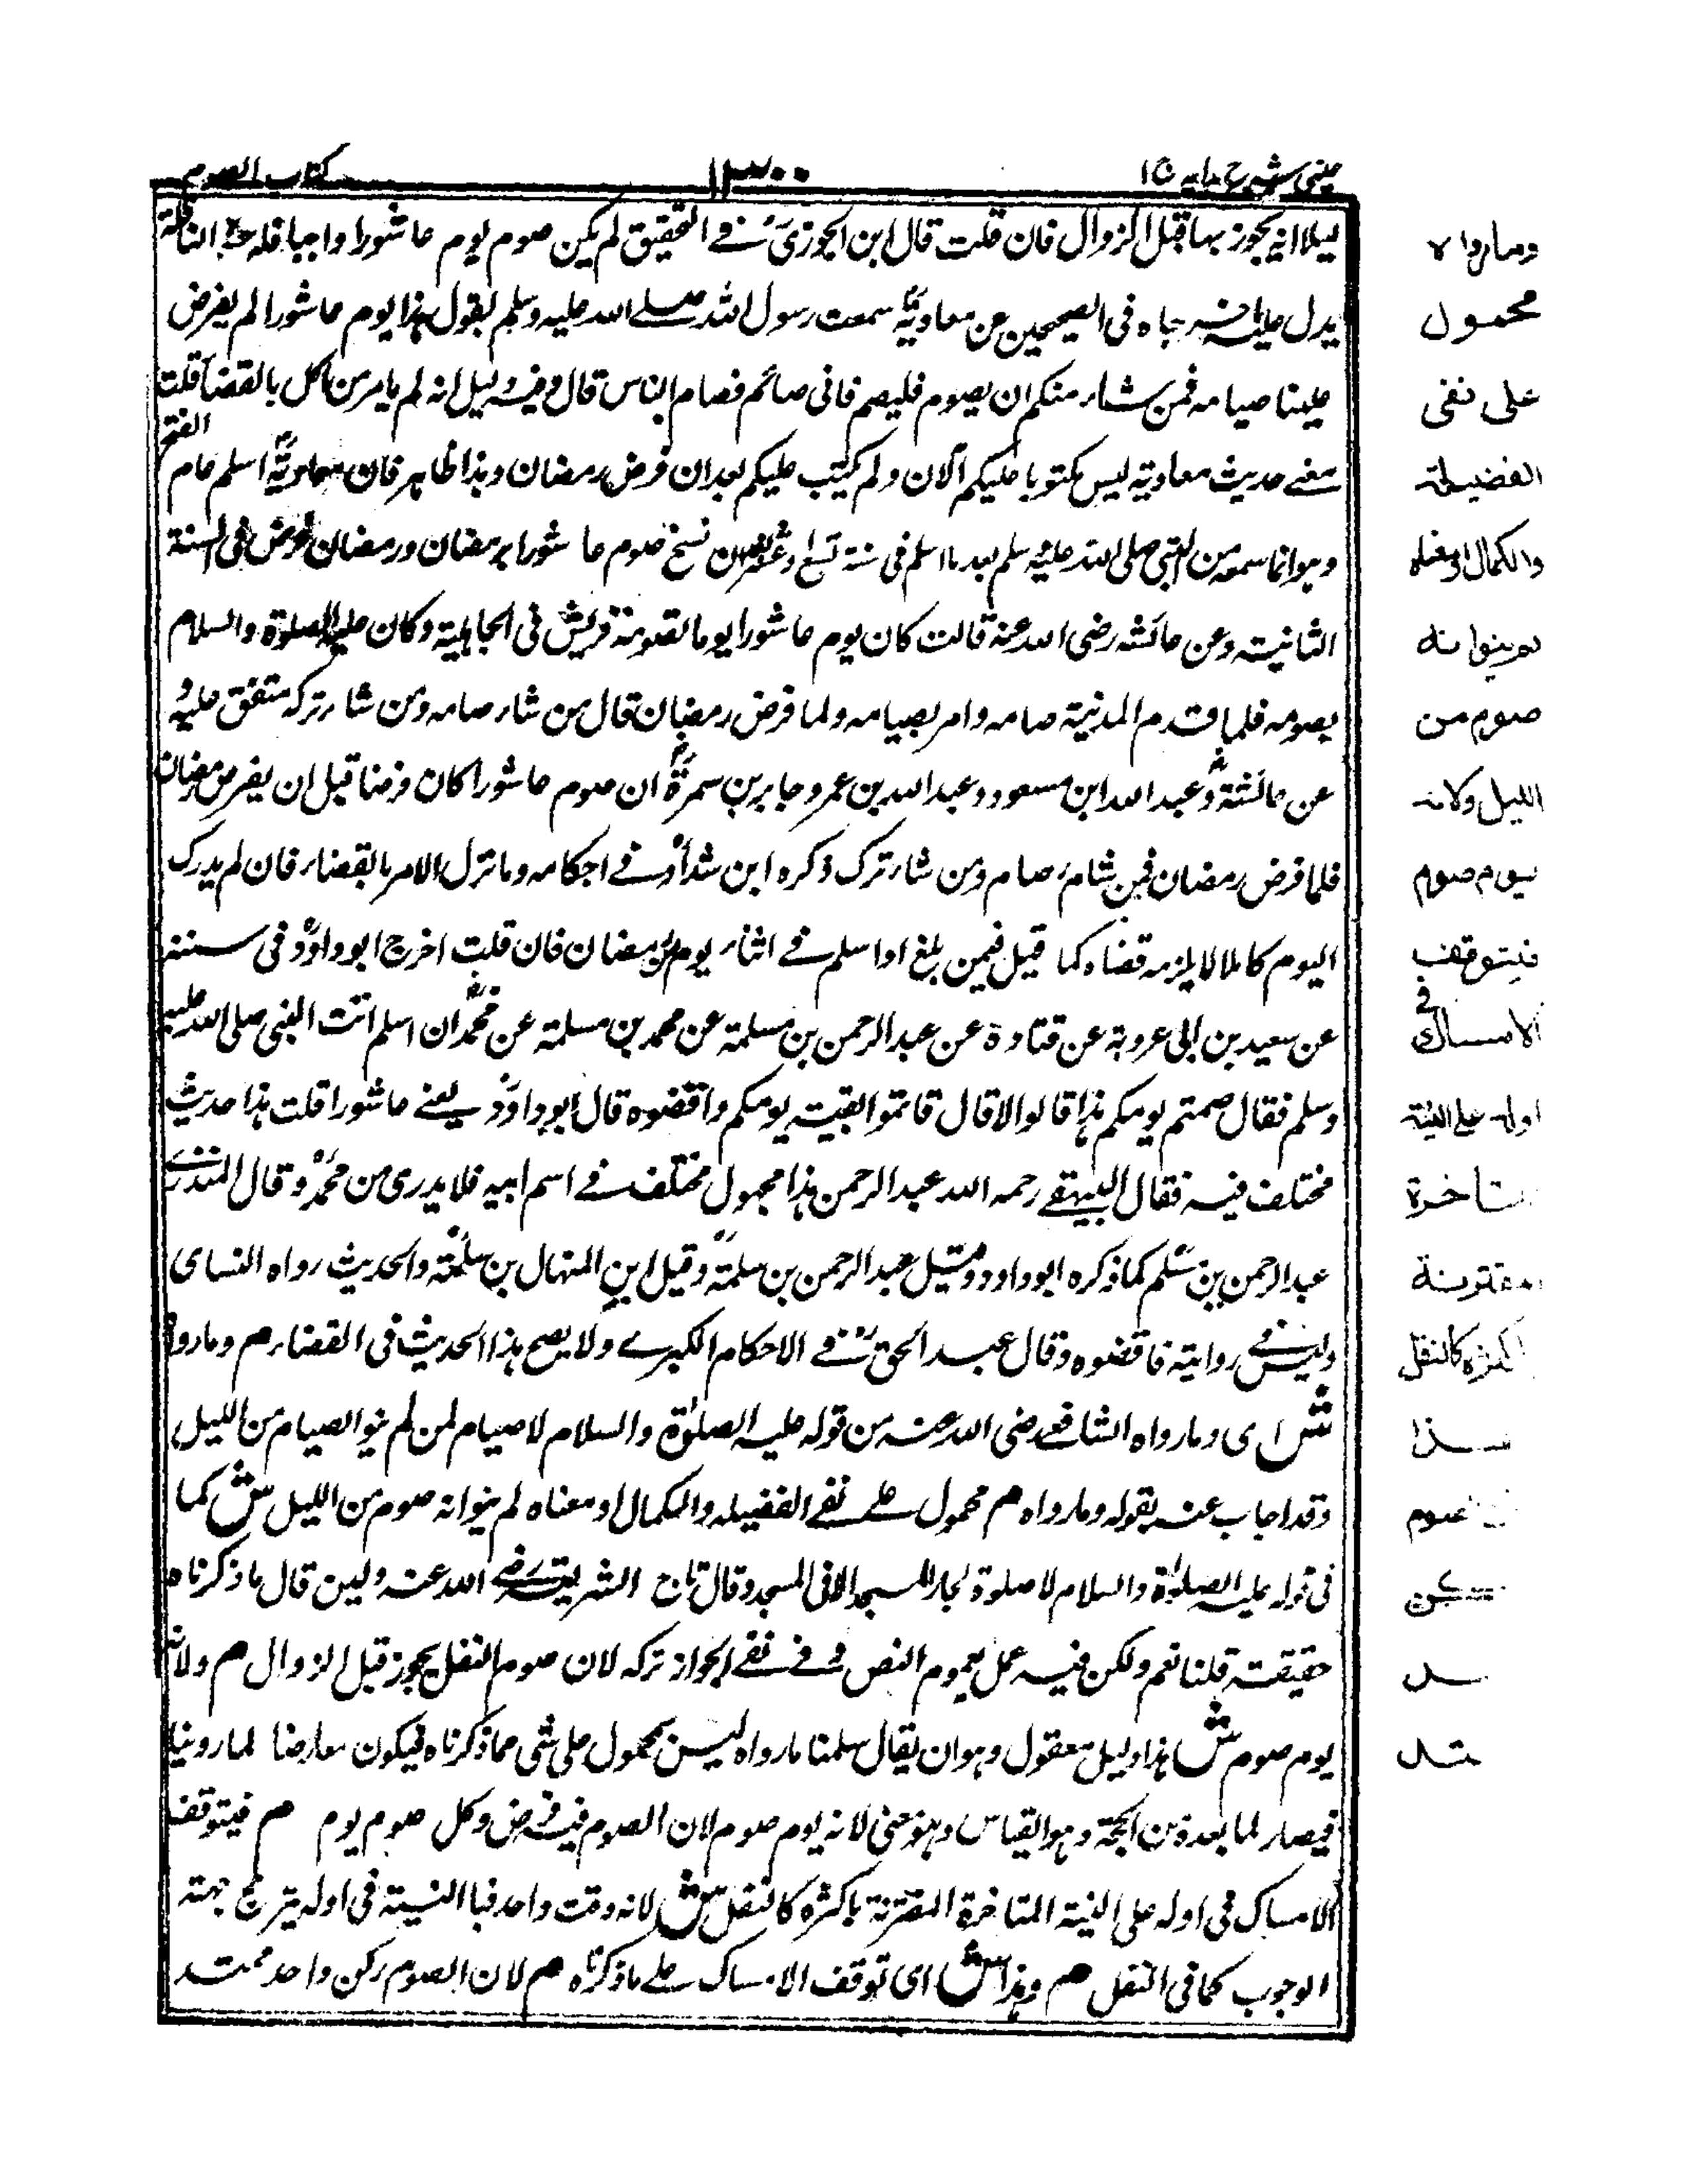 عینی شرح ہدایہ ج ا
۱۳۰۰
کتاب الصوم
لیلا انہ یجوز بہا قبل الزوال فان قلت قال ابن الجوزی فے التحقیق لم یکن صوم یوم عاشورا واجبا فلہ حکم النافلة
یدل علیہ اخرجاہ فی الصحیحین عن معاویة سمعت رسول اللہ صلے اللہ علیہ وسلم یقول ہذا یوم عاشورا لم یفرض
علینا صیامہ فمن شاء منکم ان یصوم فلیصم فانی صائم فصام الناس قال وفیہ دلیل انہ لم یامر من اکل بالقضا قلت
معنے حدیث معاویة لیس مکتوبا علیکم الآن ولم یکتب علیکم بعد ان فرض رمضان وہذا ظاہر فان معاویة اسلم عام الفتح
وہو انما سمعہ من النبی صلی اللہ علیہ وسلم بعد ما اسلم فی سنة تسع او عشر بعد ان نسخ صوم عاشورا برمضان ورمضان فرض فی السنة
الثانیة وعن عائشہ رضی اللہ عنہ قالت کان یوم عاشورا یوما تصومہ قریش فی الجاہلیة وکان علیہ الصلوة والسلام
یصومہ فلما قدم المدینة صامہ وامر بصیامہ ولما فرض رمضان قال من شاء صامہ ومن شاء ترکہ متفق علیہ و
عن عائشة وعبد اللہ ابن مسعود وعبد اللہ بن عمر وجابر بن سمرة ان صوم عاشورا کان فرضا قبل ان یفرض رمضان
فلما فرض رمضان فمن شاء صام ومن شاء ترک ذکرہ ابن شداد فے احکامہ وما ترک الامر بالقضاء فان لم یدرک
الیوم کاملا لا یلزمہ قضاءہ کما قیل فیمن بلغ او اسلم فے اثناء یوم من رمضان فان قلت اخرج ابو داؤد فی سننہ
عن سعید بن ابی عروبة عن قتادة عن عبد الرحمن بن مسلمة عن محمد بن مسلمة عن عمہ ان اسلم اتت النبی صلی اللہ علیہ
وسلم فقال صمتم یومکم ہذا قالوا لا قال فاتموا بقیة یومکم واقضوہ قال ابو داؤد یعنے عاشورا قلت ہذا حدیث
مختلف فیہ فقال البیہقے رحمہ اللہ عبد الرحمن ہذا مجہول مختلف فے اسم ابیہ فلا یدری من عمہ وقال المنذرے
عبد الرحمن بن مسلم کما ذکرہ ابو داود وقیل عبد الرحمن بن سلمة وقیل ابن المنہال بن سلمة والحدیث رواہ النسای
ولیس فے روایتہ فاقضوہ وقال عبد الحق فے الاحکام الکبرے ولا یصح ہذا الحدیث فی القضاء م وما رواہ
ش ای وما رواہ الشافعے رضی اللہ عنہ من قولہ علیہ الصلوة والسلام لا صیام لمن لم ینو الصیام من اللیل
وقد اجاب عنہ بقولہ وما رواہ م محمول علے نفے الفضیلہ والکمال او معناہ لم ینو انہ صوم من اللیل ش کما
فی قولہ علیہ الصلوة والسلام لا صلوة لجار المسجد الا فی المسجد وقال تاج الشریعة رضے اللہ عنہ ولین قال ما ذکرناہ
حقیقتہ قلنا نعم ولکن فیہ عمل بعموم النص وفے نفے الجواز ترکہ لان صوم النفل یجوز قبل الزوال م ولانہ
یوم صوم ش ہذا دلیل معقول وہو ان یقال سلمنا ما رواہ لیس بمحمول علی شی مما ذکرناہ فیکون معارضا لما روینا
فیصار لما بعدہ من الحجة وہو القیاس وہو معنی لانہ یوم صوم لان الصوم فیہ فرض وکل صوم یوم م فیتوقف
الامساک فی اولہ علی النیة المتاخرة المقترنة باکثرہ کالنفل ش لانہ وقت واحد فبا النیة فی اولہ یترجح جہتہ
الوجوب کما فی النفل م وہذا ش ای توقف الامساک علے ما ذکرناہ م لان الصوم رکن واحد ممتد
وما رواہ
محمول
علی نفی
الفضیلة
والکمال او معناہ
لم ینو انہ
صوم من
اللیل ولانہ
یوم صوم
فیتوقف
الامساک فی
اولہ علی النیة
المتاخرة
المقترنة
باکثرہ کالنفل
وہذا
لان الصوم
رکن
واحد
ممتد